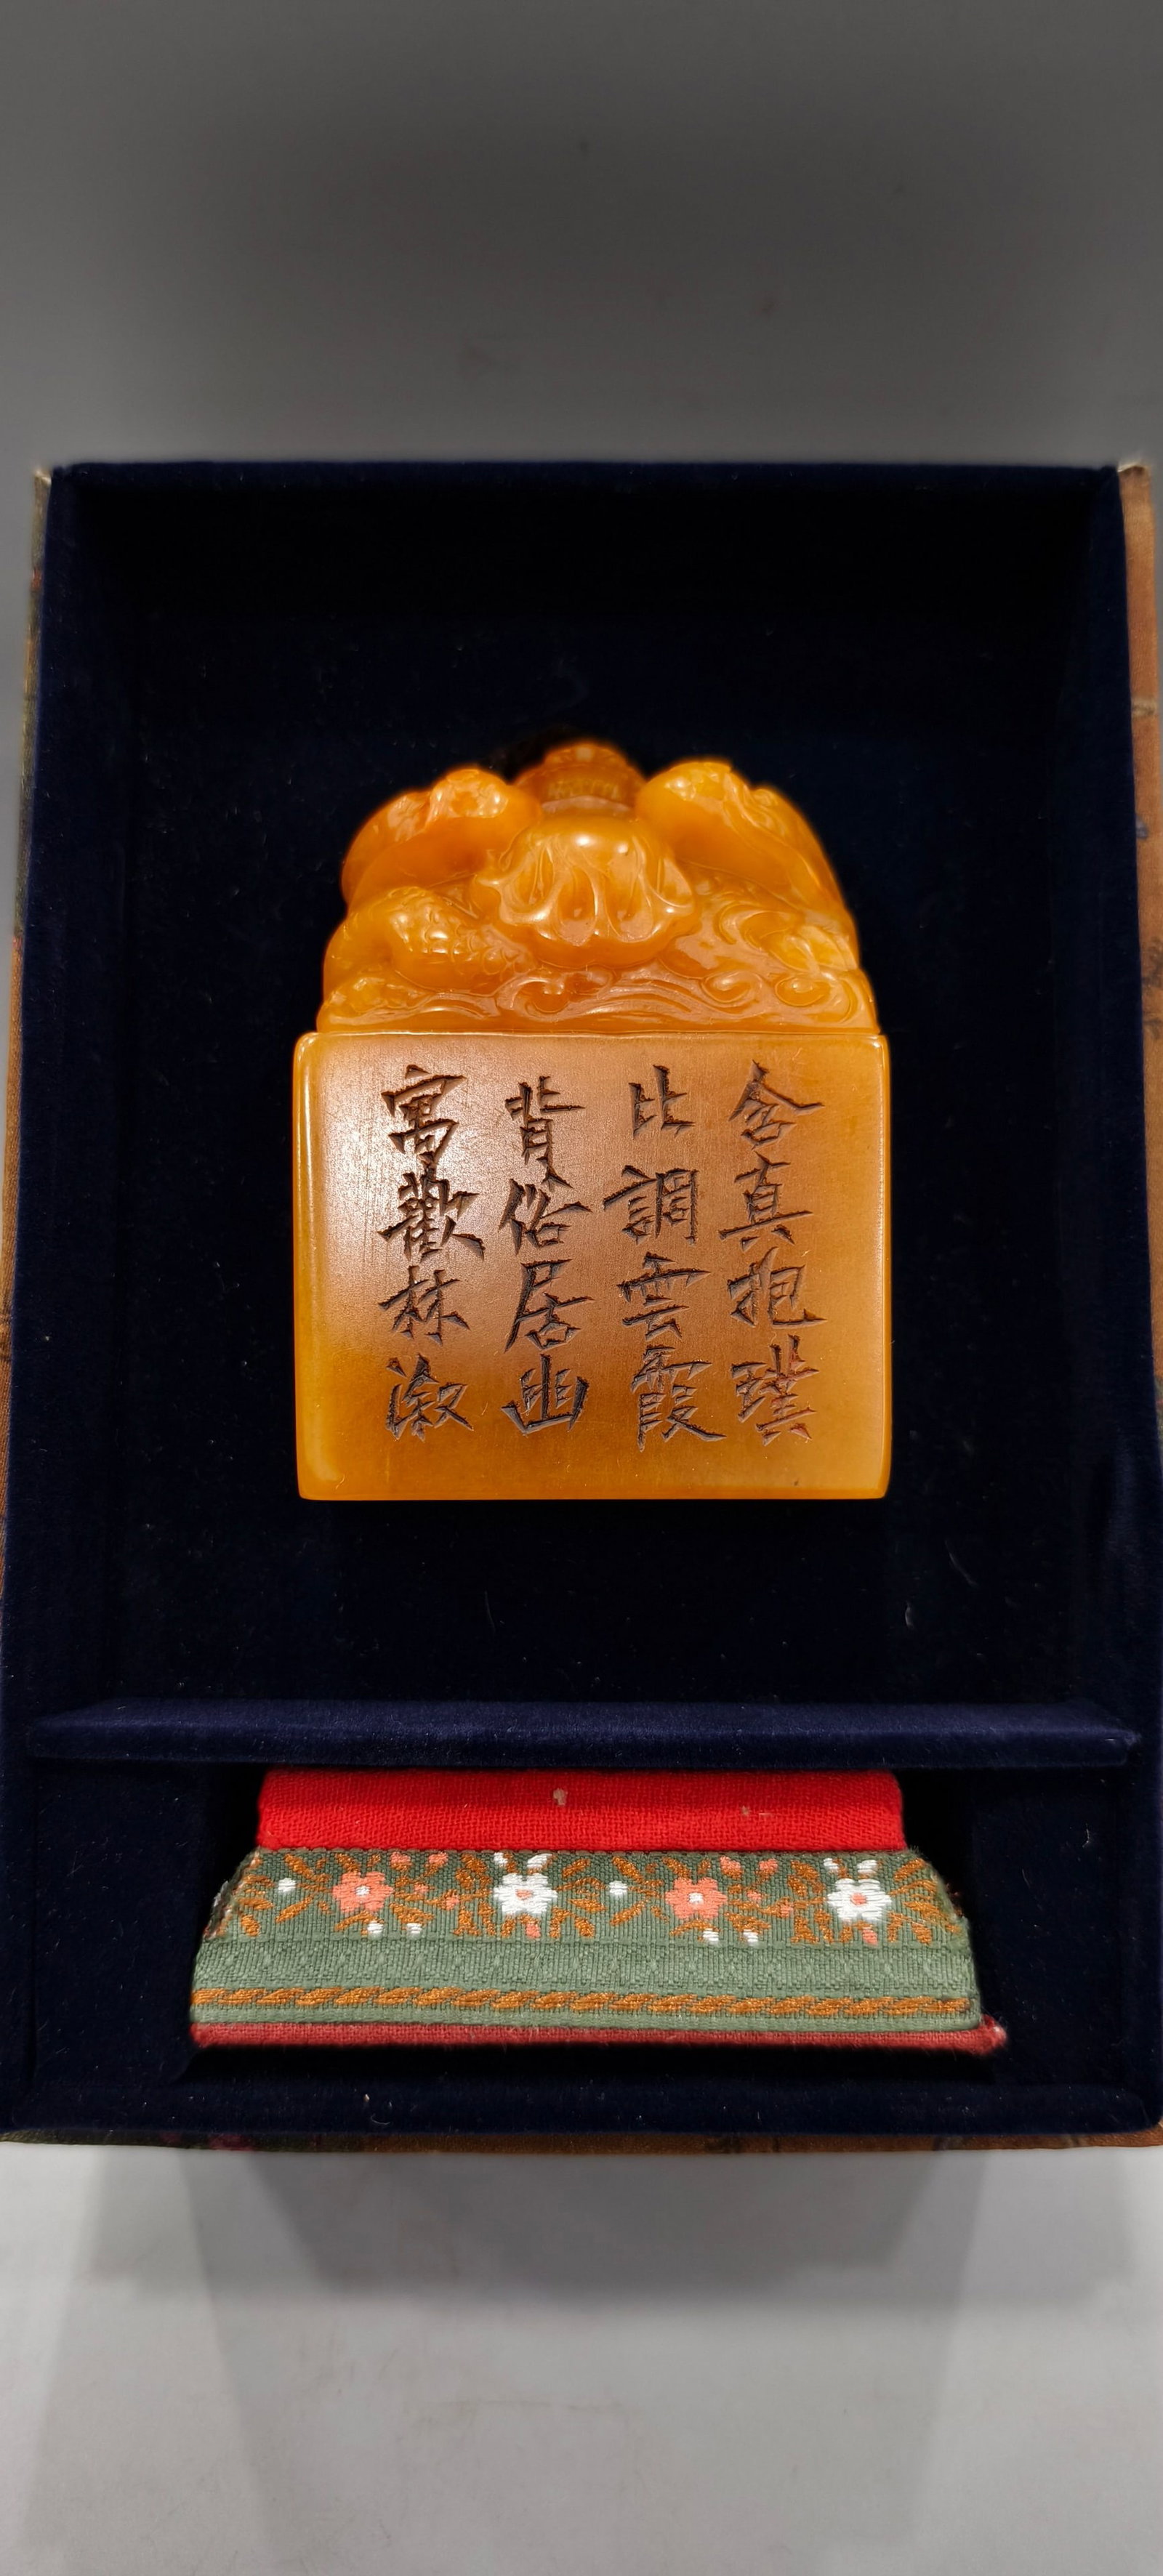 含真抱璞
比調雲霞
背俗居幽
寓歡林漵